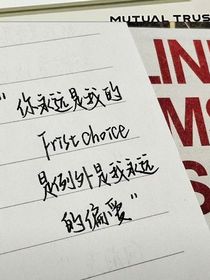 MUTUAL TRUS
"你永远是我的
Frist choice
是例外是我永远
的偏爱"
LIN
MS
S